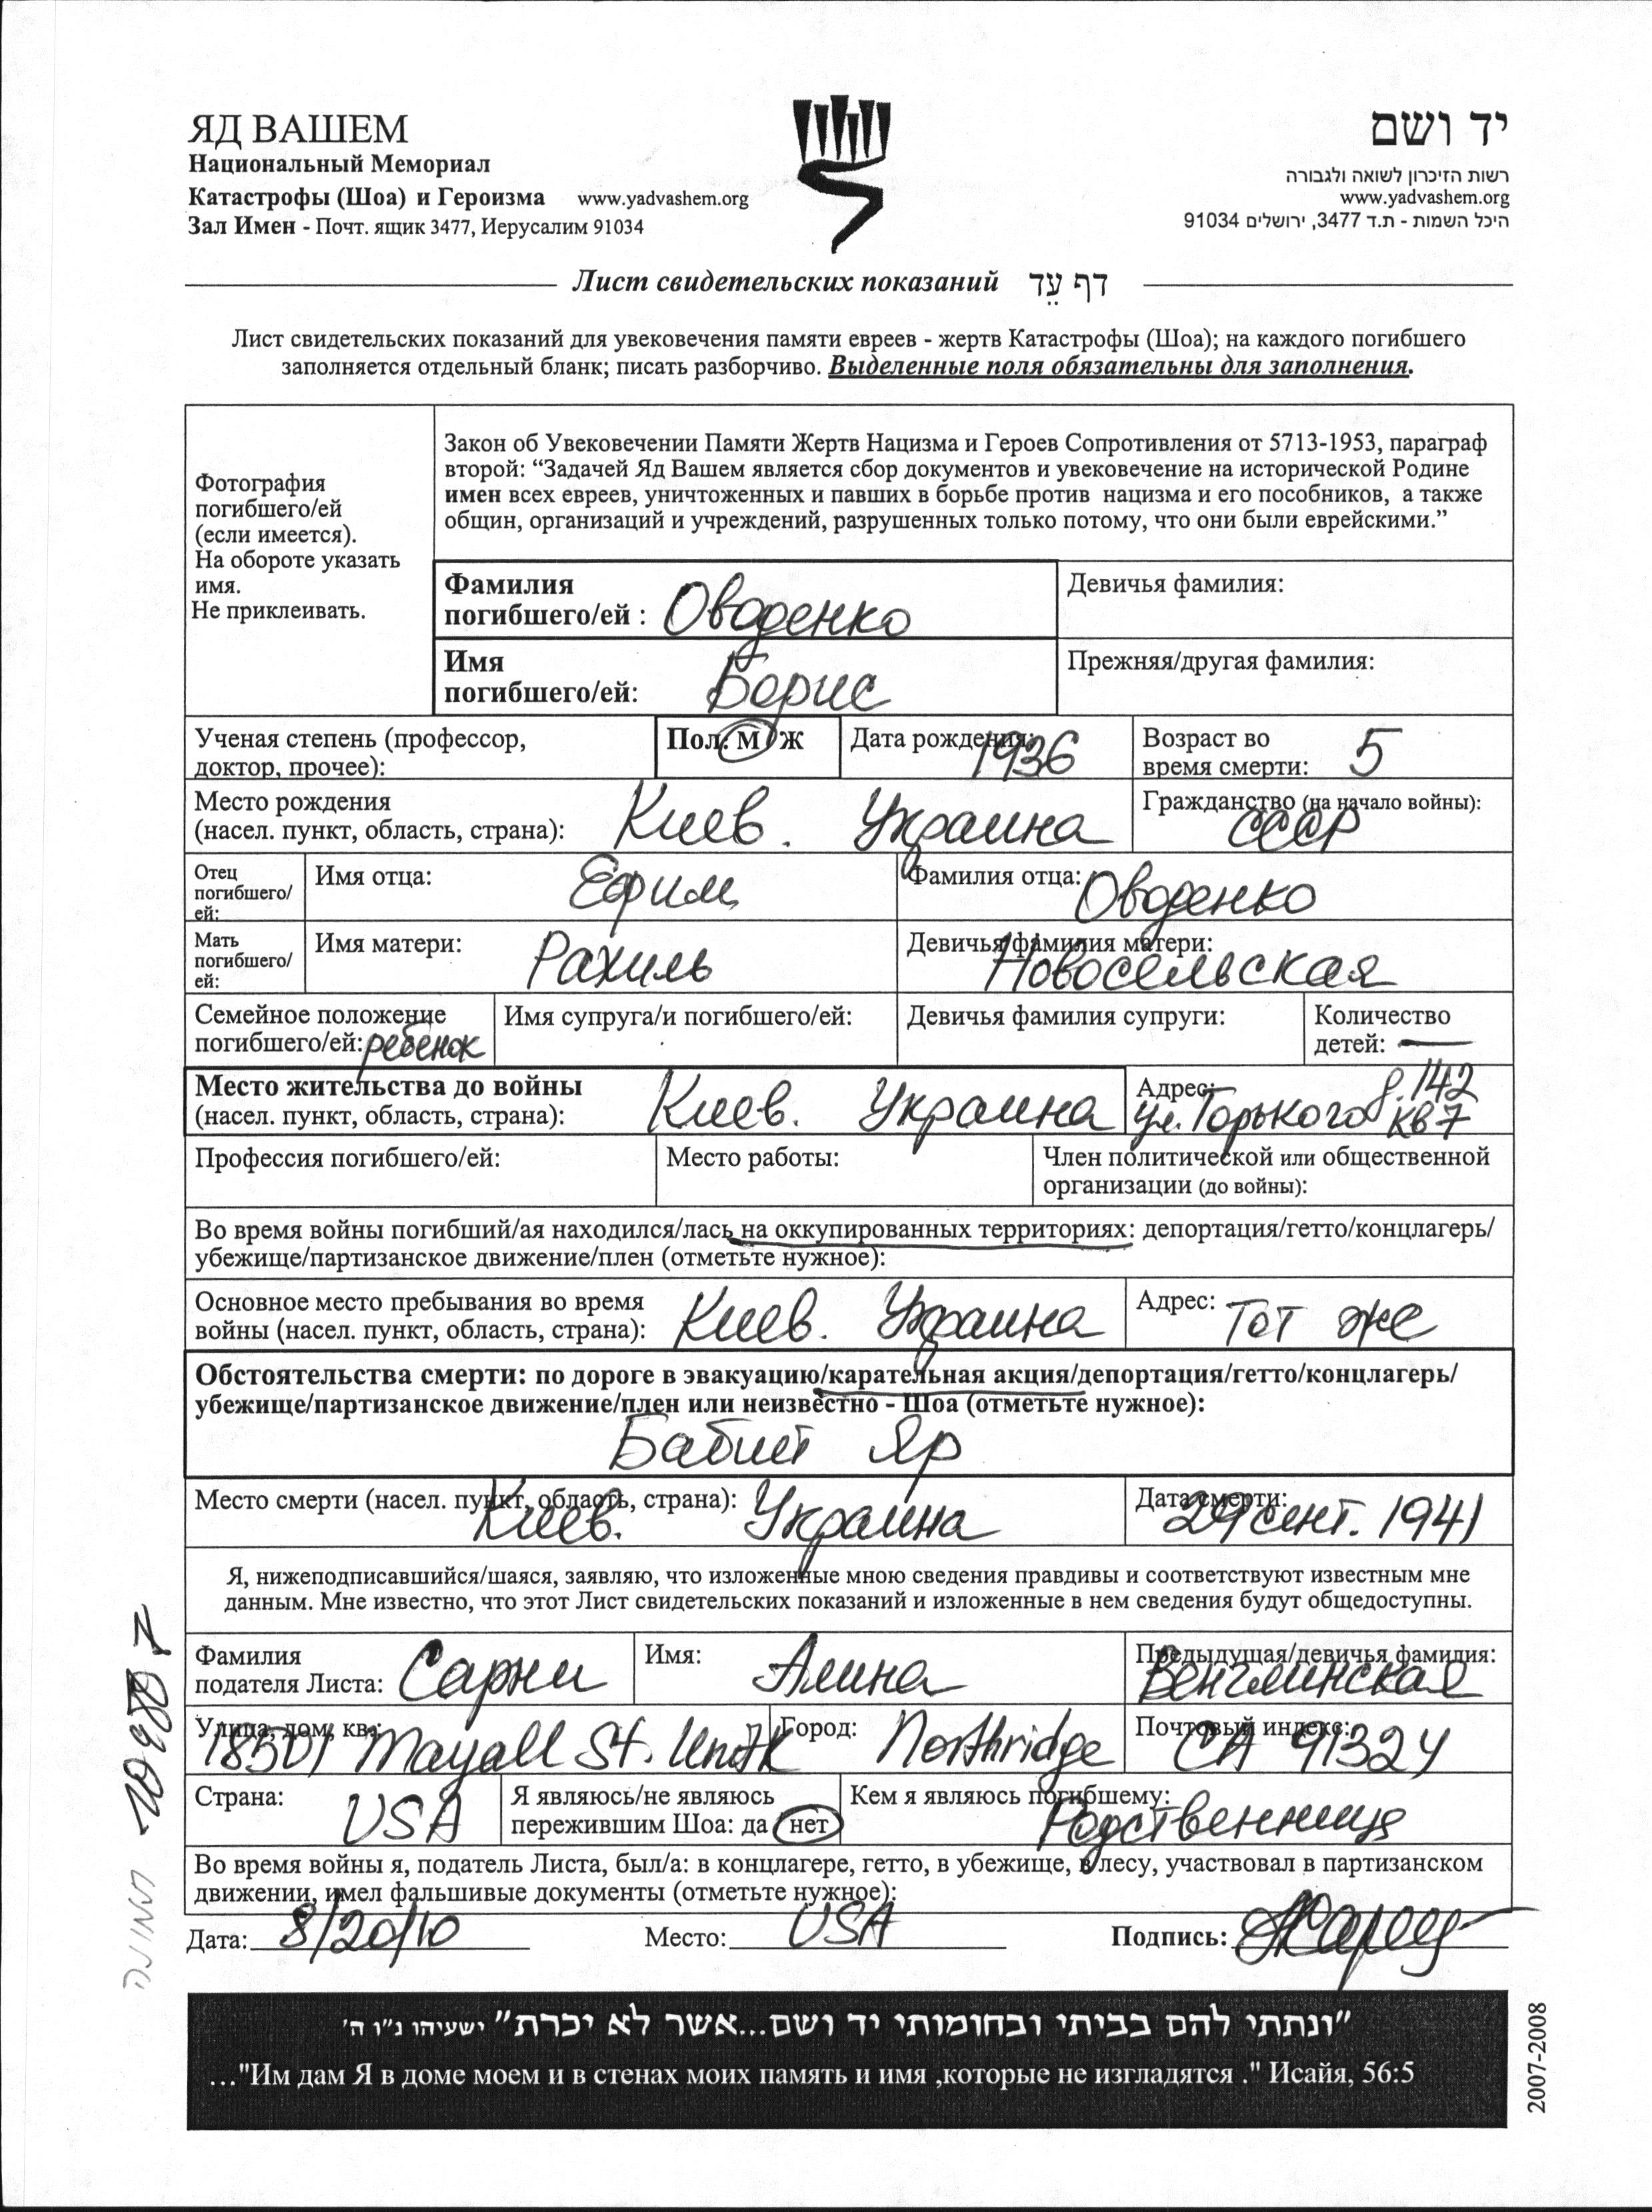 ЯД ВАШЕМ
Национальный Мемориал
Катастрофы (Шоа) и Героизма www.yadvashem.org
Зал Имен - Почт. ящик 3477, Иерусалим 91034
יד ושם
רשות הזיכרון לשואה ולגבורה
www.yadvashem.org
היכל השמות - ת.ד 3477, ירושלים 91034
Лист свидетельских показаний דף עֵד
Лист свидетельских показаний для увековечения памяти евреев - жертв Катастрофы (Шоа); на каждого погибшего
заполняется отдельный бланк; писать разборчиво. Выделенные поля обязательны для заполнения.
Фотография
погибшего/ей
(если имеется).
На обороте указать
имя.
Не приклеивать.
Закон об Увековечении Памяти Жертв Нацизма и Героев Сопротивления от 5713-1953, параграф
второй: “Задачей Яд Вашем является сбор документов и увековечение на исторической Родине
имен всех евреев, уничтоженных и павших в борьбе против нацизма и его пособников, а также
общин, организаций и учреждений, разрушенных только потому, что они были еврейскими.”
Фамилия
погибшего/ей : Оводенко
Девичья фамилия:
Имя
погибшего/ей: Борис
Прежняя/другая фамилия:
Ученая степень (профессор,
доктор, прочее):
Пол: М / Ж
Дата рождения: 1936
Возраст во
время смерти: 5
Место рождения
(насел. пункт, область, страна): Киев. Украина
Гражданство (на начало войны):
СССР
Отец
погибшего/
ей:
Имя отца: Ефим
Фамилия отца: Оводенко
Мать
погибшего/
ей:
Имя матери: Рахиль
Девичья фамилия матери:
Новосельская
Семейное положение
погибшего/ей: ребенок
Имя супруга/и погибшего/ей:
Девичья фамилия супруги:
Количество
детей: —
Место жительства до войны
(насел. пункт, область, страна): Киев. Украина
Адрес: д. 142
ул. Горького кв 7
Профессия погибшего/ей:
Место работы:
Член политической или общественной
организации (до войны):
Во время войны погибший/ая находился/лась на оккупированных территориях: депортация/гетто/концлагерь/
убежище/партизанское движение/плен (отметьте нужное):
Основное место пребывания во время
войны (насел. пункт, область, страна): Киев. Украина
Адрес: Тот же
Обстоятельства смерти: по дороге в эвакуацию/карательная акция/депортация/гетто/концлагерь/
убежище/партизанское движение/плен или неизвестно - Шоа (отметьте нужное):
Бабий Яр
Место смерти (насел. пункт, область, страна):
Киев. Украина
Дата смерти:
29 сент. 1941
Я, нижеподписавшийся/шаяся, заявляю, что изложенные мною сведения правдивы и соответствуют известным мне
данным. Мне известно, что этот Лист свидетельских показаний и изложенные в нем сведения будут общедоступны.
Фамилия
подателя Листа: Сарни
Имя: Алина
Предыдущая/девичья фамилия:
Венглинская
Улица, дом, кв.:
18501 Mayall St. Unit K
Город: Northridge
Почтовый индекс:
CA 91324
Страна: USA
Я являюсь/не являюсь
пережившим Шоа: да / нет
Кем я являюсь погибшему:
Родственница
Во время войны я, податель Листа, был/а: в концлагере, гетто, в убежище, в лесу, участвовал в партизанском
движении, имел фальшивые документы (отметьте нужное):
Дата: 8/20/10
Место: USA
Подпись:
"ונתתי להם בביתי ובחומותי יד ושם...אשר לא יכרת" ישעיהו נ"ו ה'
..."Им дам Я в доме моем и в стенах моих память и имя ,которые не изгладятся ." Исайя, 56:5
2007-2008
תמונה